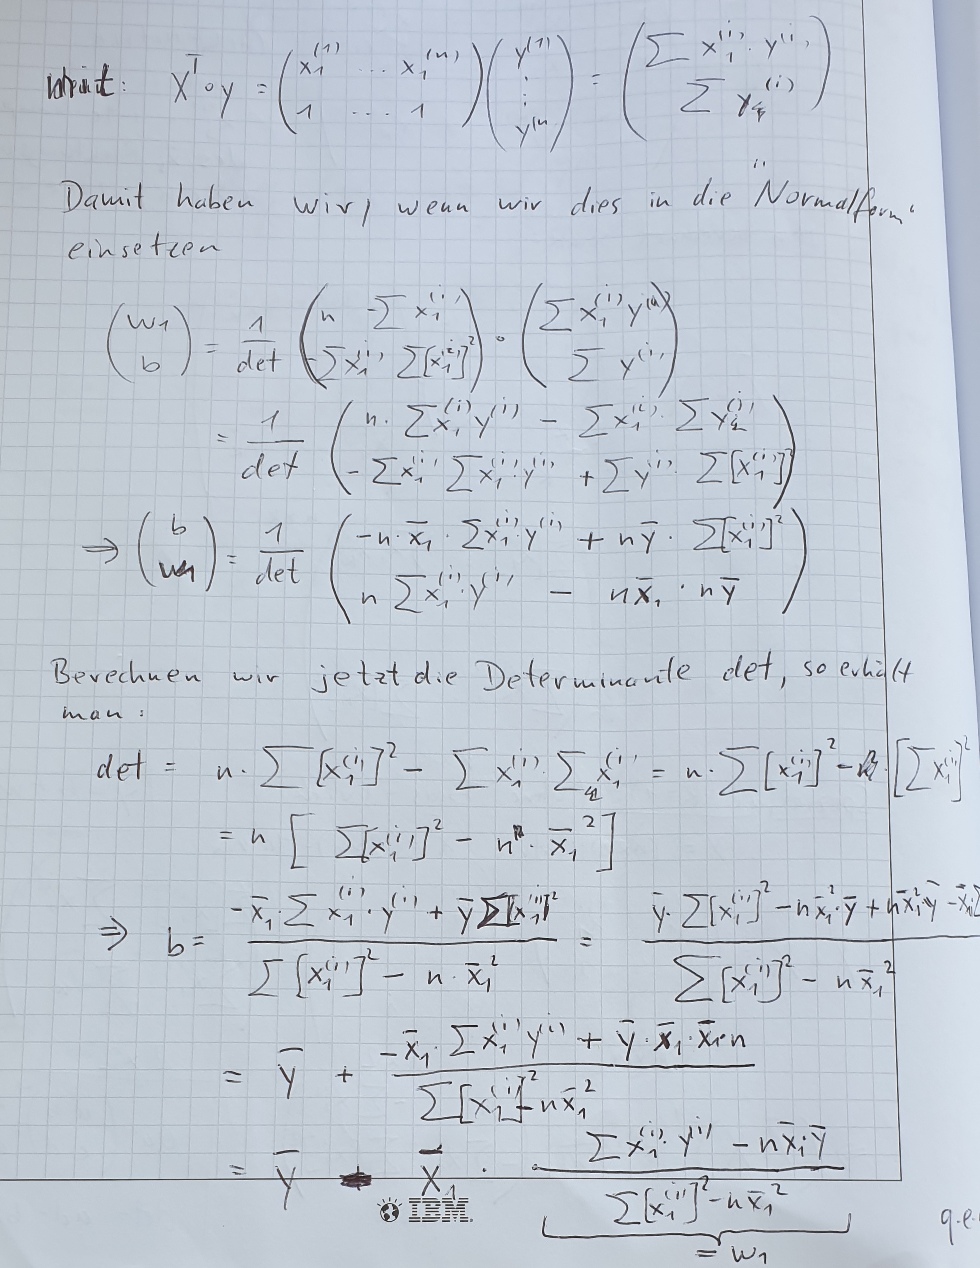 mit: X^T ∘ y = ( x₁^(1) ... x₁^(n) ; 1 ... 1 ) ( y^(1) ; ⋮ ; y^(n) ) = ( Σ x₁^(i) · y^(i) ; Σ y^(i) )
Damit haben wir, wenn wir dies in die Normalform
einsetzen
( w₁ ; b ) = 1/det ( n  -Σ x₁^(i) ; -Σ x₁^(i)  Σ[x₁^(i)]² ) ∘ ( Σ x₁^(i) y^(i) ; Σ y^(i) )
= 1/det ( n · Σ x₁^(i) y^(i) - Σ x₁^(i) · Σ y^(i) ; -Σ x₁^(i) Σ x₁^(i) y^(i) + Σ y^(i) · Σ[x₁^(i)]² )
→ ( b ; w₁ ) = 1/det ( -n · x̄₁ · Σ x₁^(i) y^(i) + n ȳ · Σ[x₁^(i)]² ; n Σ x₁^(i) y^(i) - n x̄₁ · n ȳ )
Berechnen wir jetzt die Determinante det, so erhält
man:
det = n · Σ [x₁^(i)]² - Σ x₁^(i) · Σ x₁^(i) = n · Σ [x₁^(i)]² - [Σ x₁^(i)]²
= n [ Σ[x₁^(i)]² - n · x̄₁² ]
⇒ b = ( -x̄₁ · Σ x₁^(i) · y^(i) + ȳ Σ[x₁^(i)]² ) / ( Σ [x₁^(i)]² - n · x̄₁² ) = ( ȳ · Σ[x₁^(i)]² - n x̄₁² · ȳ + n x̄₁² · ȳ - x̄₁ / ( Σ [x₁^(i)]² - n x̄₁² )
= ȳ + ( -x̄₁ · Σ x₁^(i) y^(i) + ȳ · x̄₁ · x̄₁ · n ) / ( Σ[x₁^(i)]² - n x̄₁² )
= ȳ - x̄₁ · ( Σ x₁^(i) · y^(i) - n x̄₁ · ȳ ) / ( Σ[x₁^(i)]² - n x̄₁² )
= w₁
q.e.